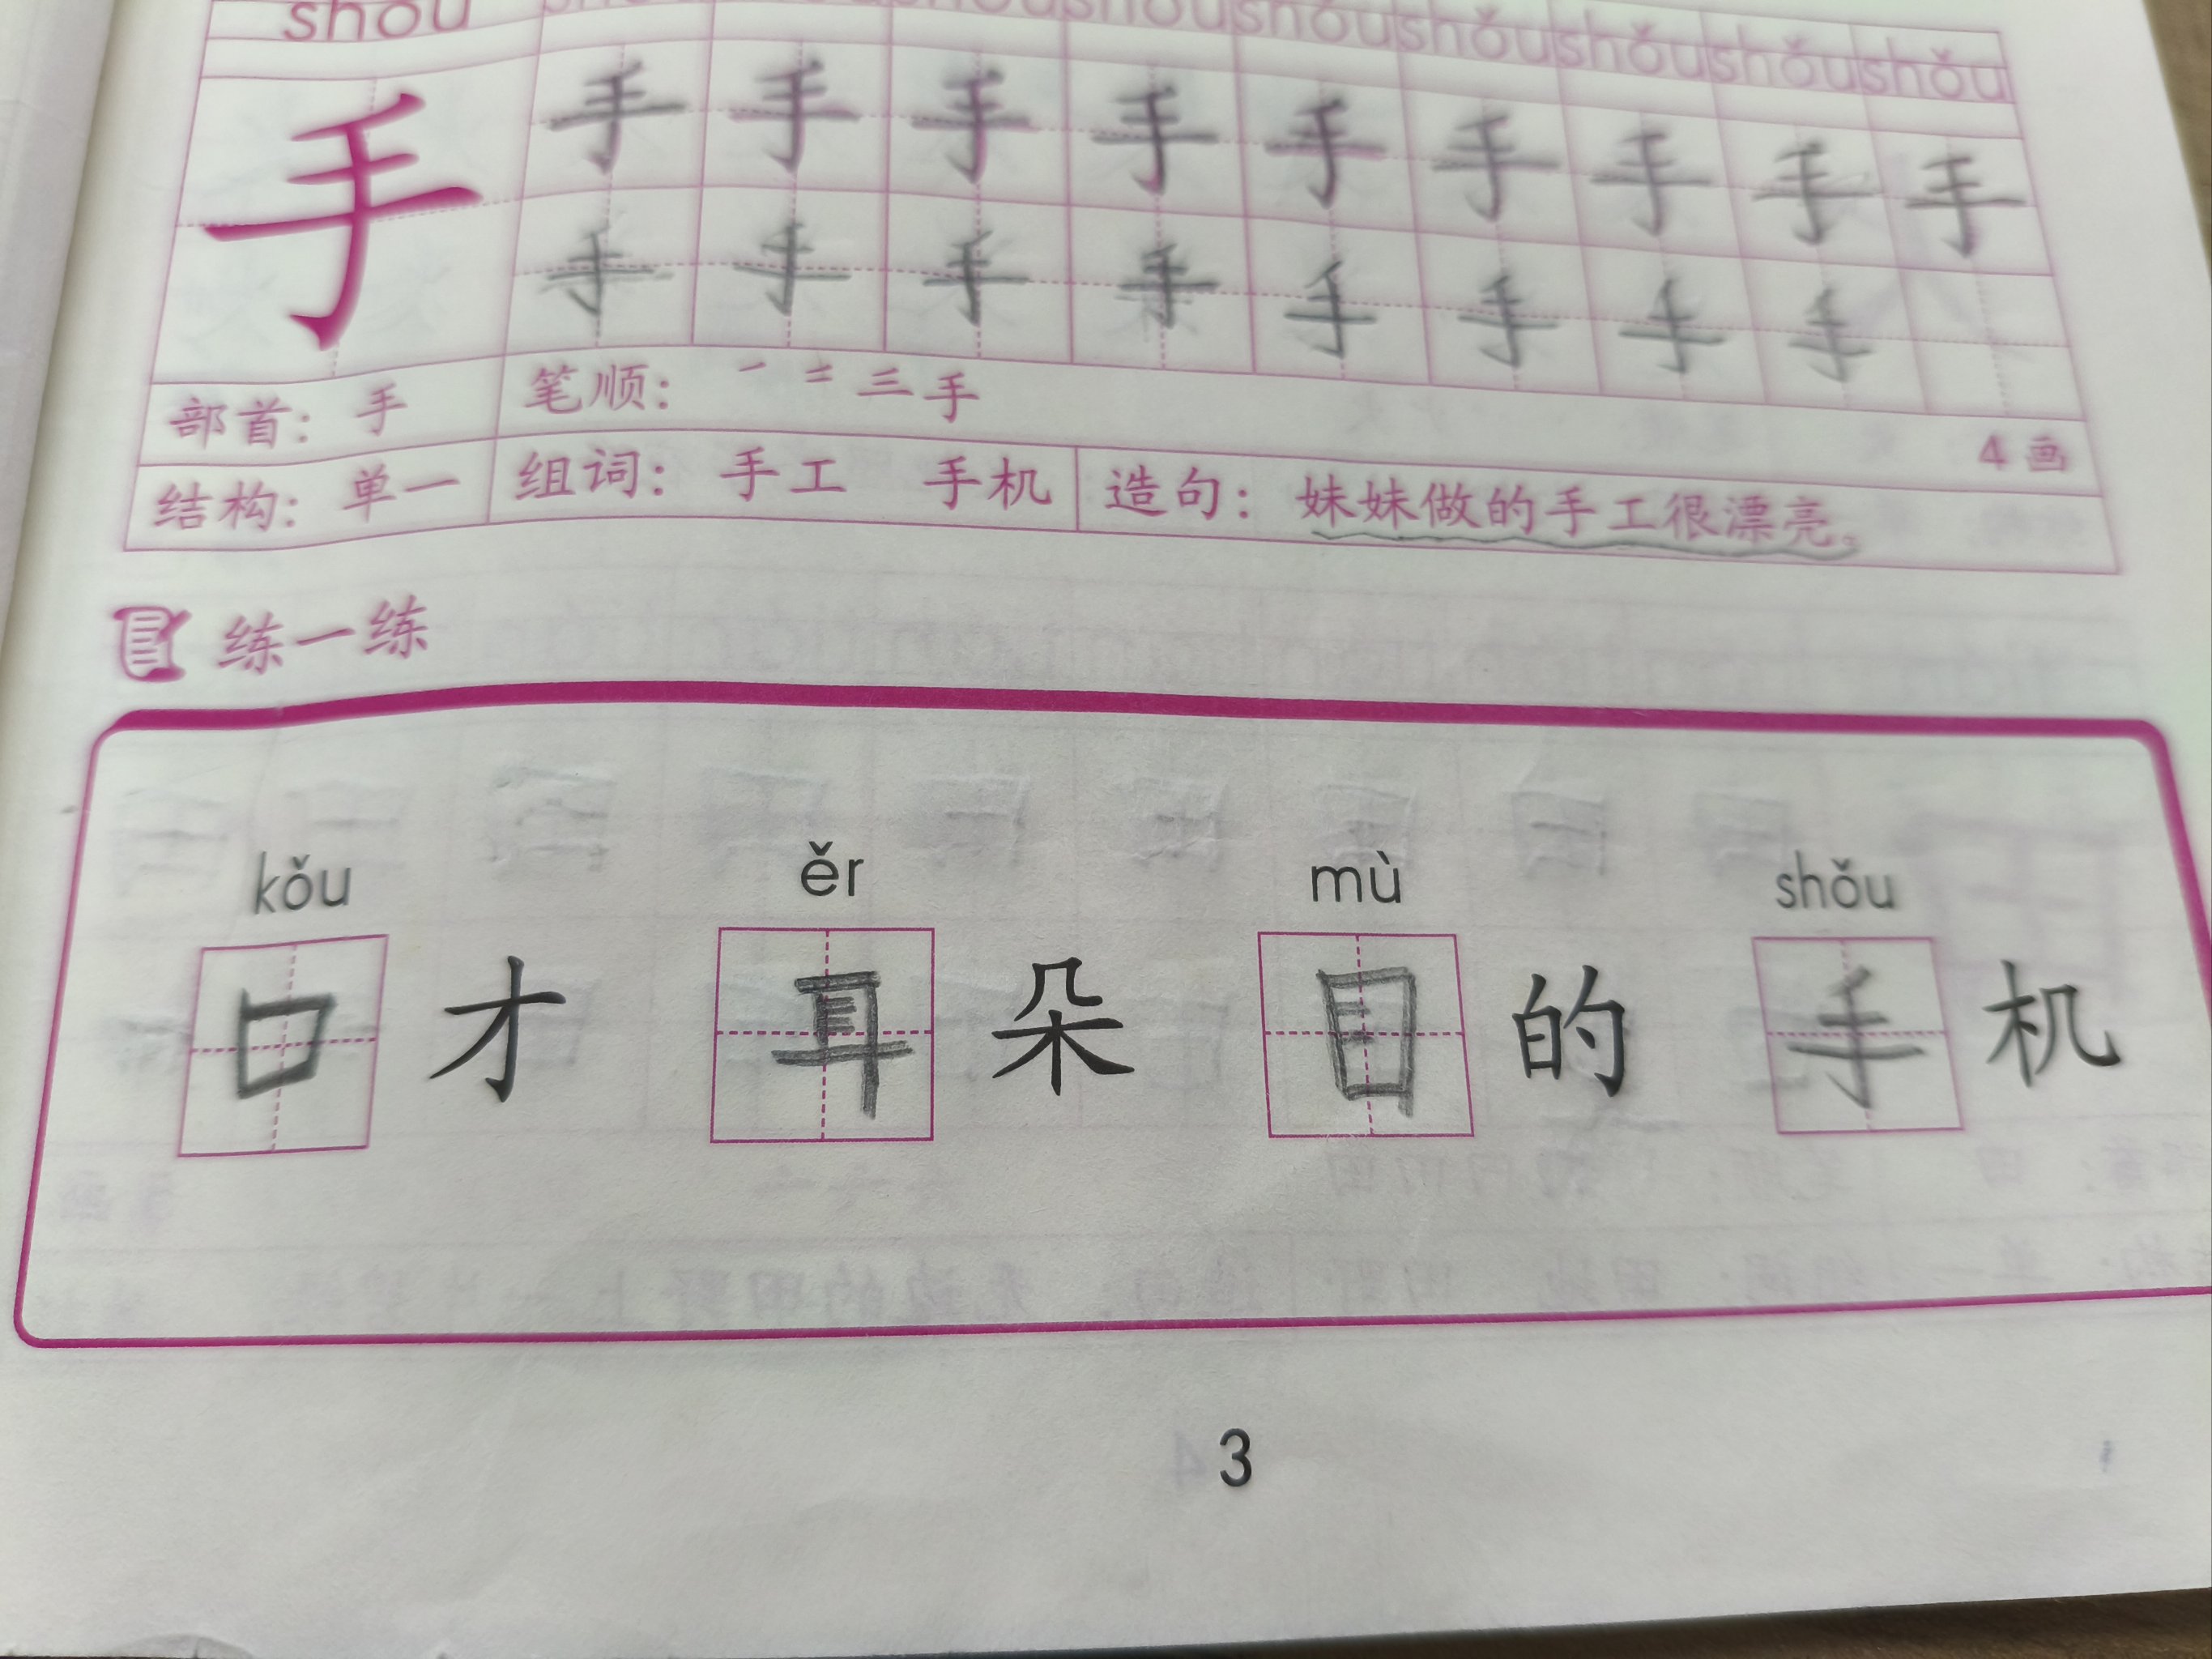 shǒu shǒu shǒu shǒu shǒu shǒu shǒu shǒu shǒu shǒu
手 手 手 手 手 手 手 手 手 手
手 手 手 手 手 手 手 手
部首： 手 笔顺： 一 二 三 手 4 画
结构： 单一 组词： 手工 手机 造句： 妹妹做的手工很漂亮。
练一练
kǒu ěr mù shǒu
口才 耳朵 目的 手机
3